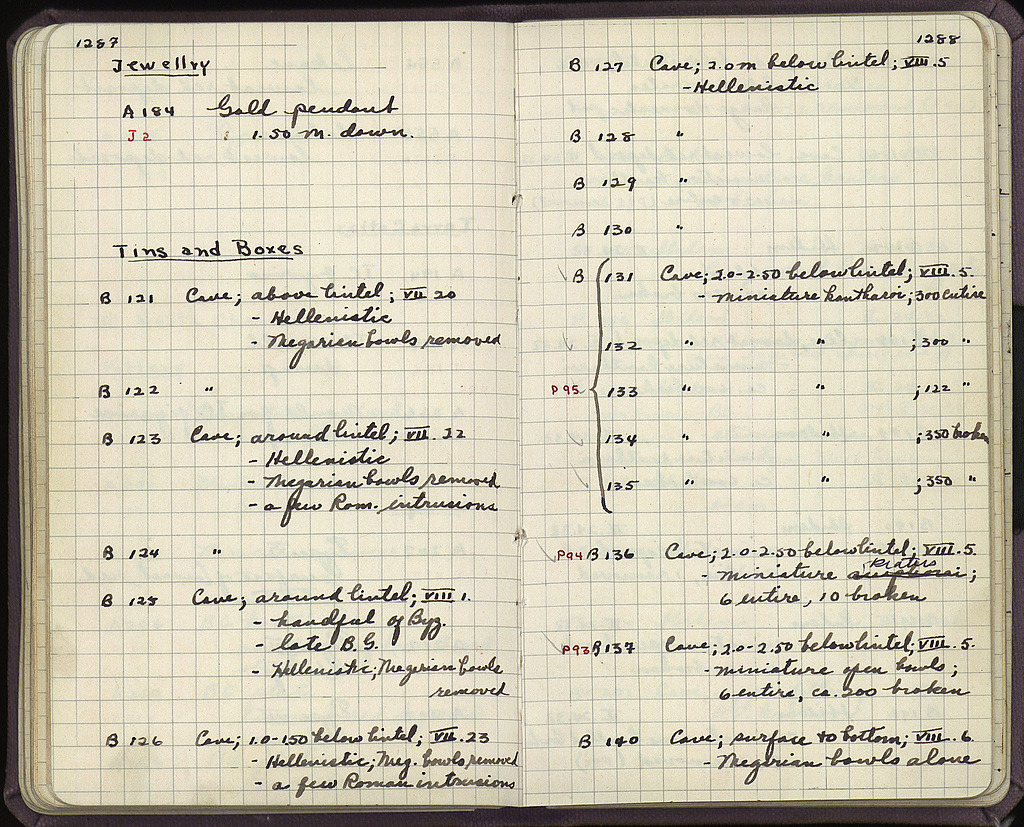 1287
Jewellry
A 184 Gold pendant
J 2 1.50 m. down.
Tins and Boxes
B 121 Cave; above lintel; VII 20
- Hellenistic
- Megarian bowls removed
B 122 "
B 123 Cave; around lintel; VII. 22
- Hellenistic
- Megarian bowls removed
- a few Rom. intrusions
B 124 "
B 125 Cave; around lintel; VIII 1.
- handful of Byz.
- late B.G.
- Hellenistic; Megarian bowls
removed
B 126 Cave; 1.0-1.50 below lintel; VII. 23
- Hellenistic; Meg. bowls removed
- a few Roman intrusions
1288
B 127 Cave; 2.0 m below lintel; VIII. 5
- Hellenistic
B 128 "
B 129 "
B 130 "
B 131 Cave; 2.0-2.50 below lintel; VIII. 5.
- miniature kantharoi; 300 entire
132 " " ; 300 "
P 95 133 " " ; 122 "
134 " " ; 350 broken
135 " " ; 350 "
P94 B 136 Cave; 2.0-2.50 below lintel; VIII. 5.
kraters
- miniature ;
6 entire, 10 broken
P93 B 137 Cave; 2.0-2.50 below lintel; VIII. 5.
- miniature open bowls;
6 entire, ca. 200 broken
B 140 Cave; surface to bottom; VIII. 6.
- Megarian bowls alone